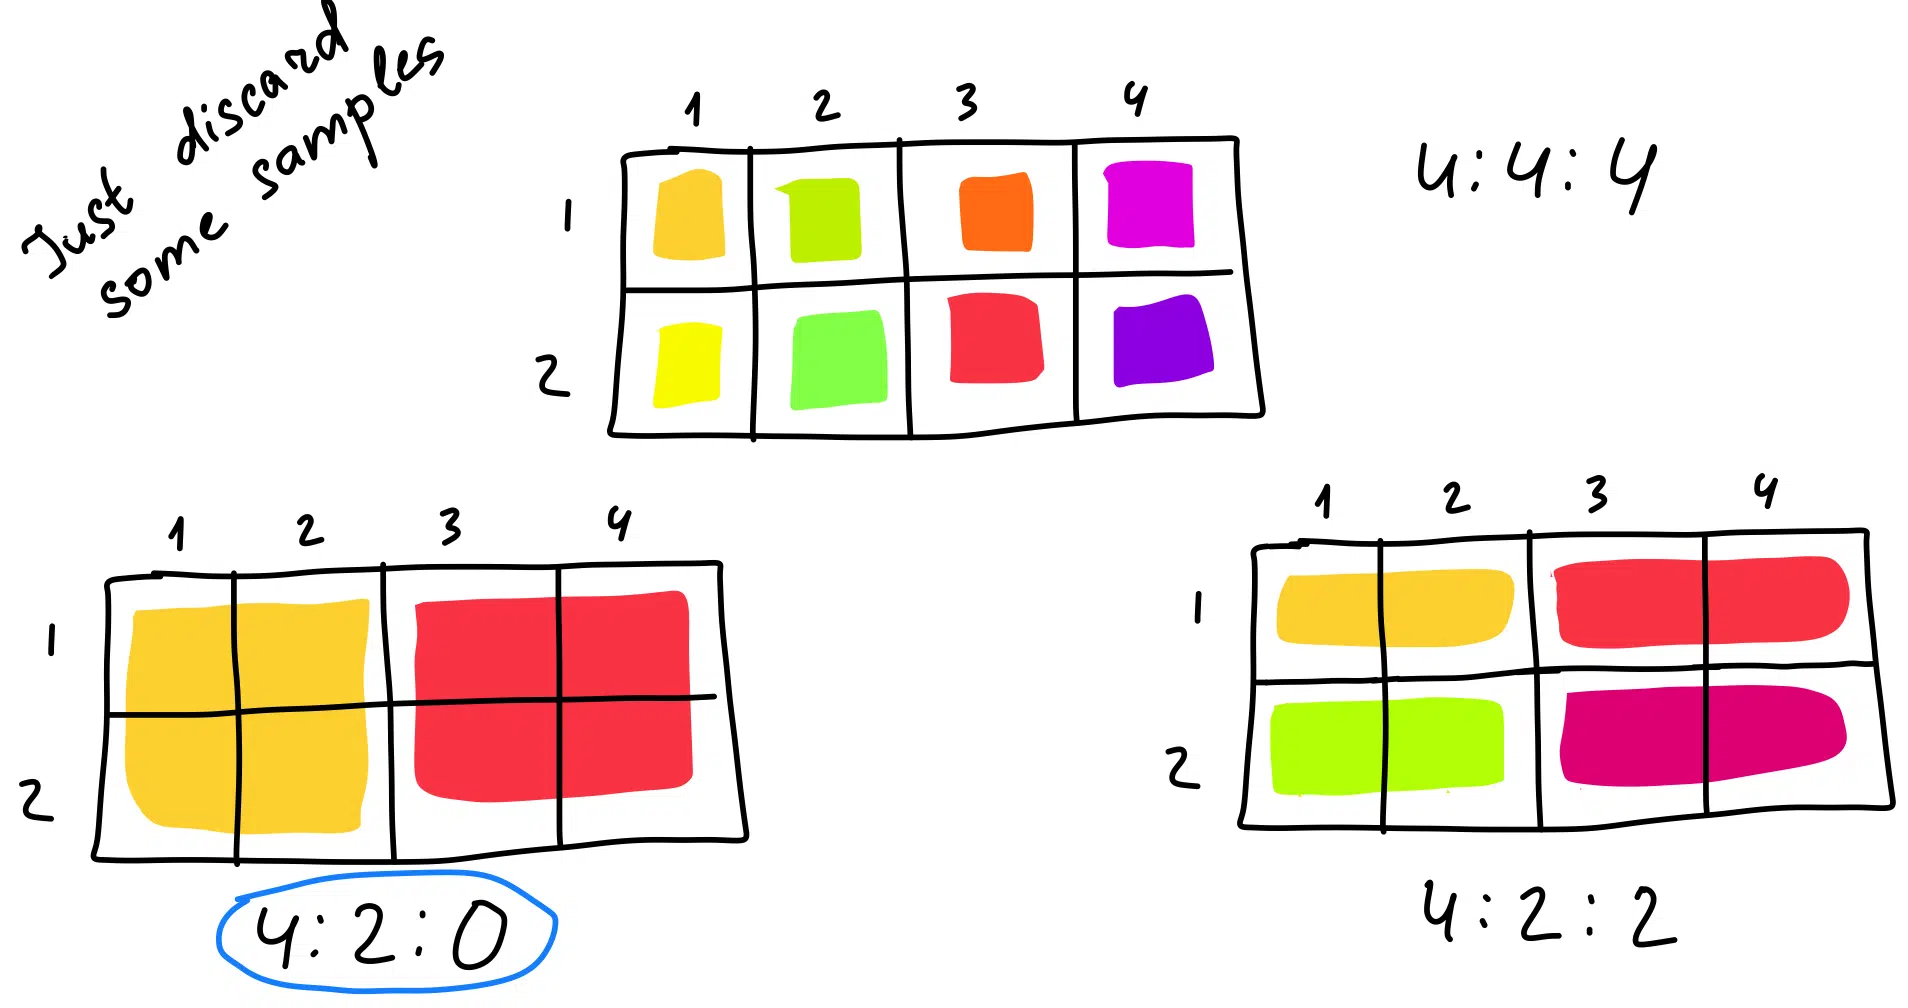 Just discard
some samples
1 2 3 4
4:4:4
1
2
1 2 3 4
1
2
4:2:0
1 2 3 4
1
2
4:2:2